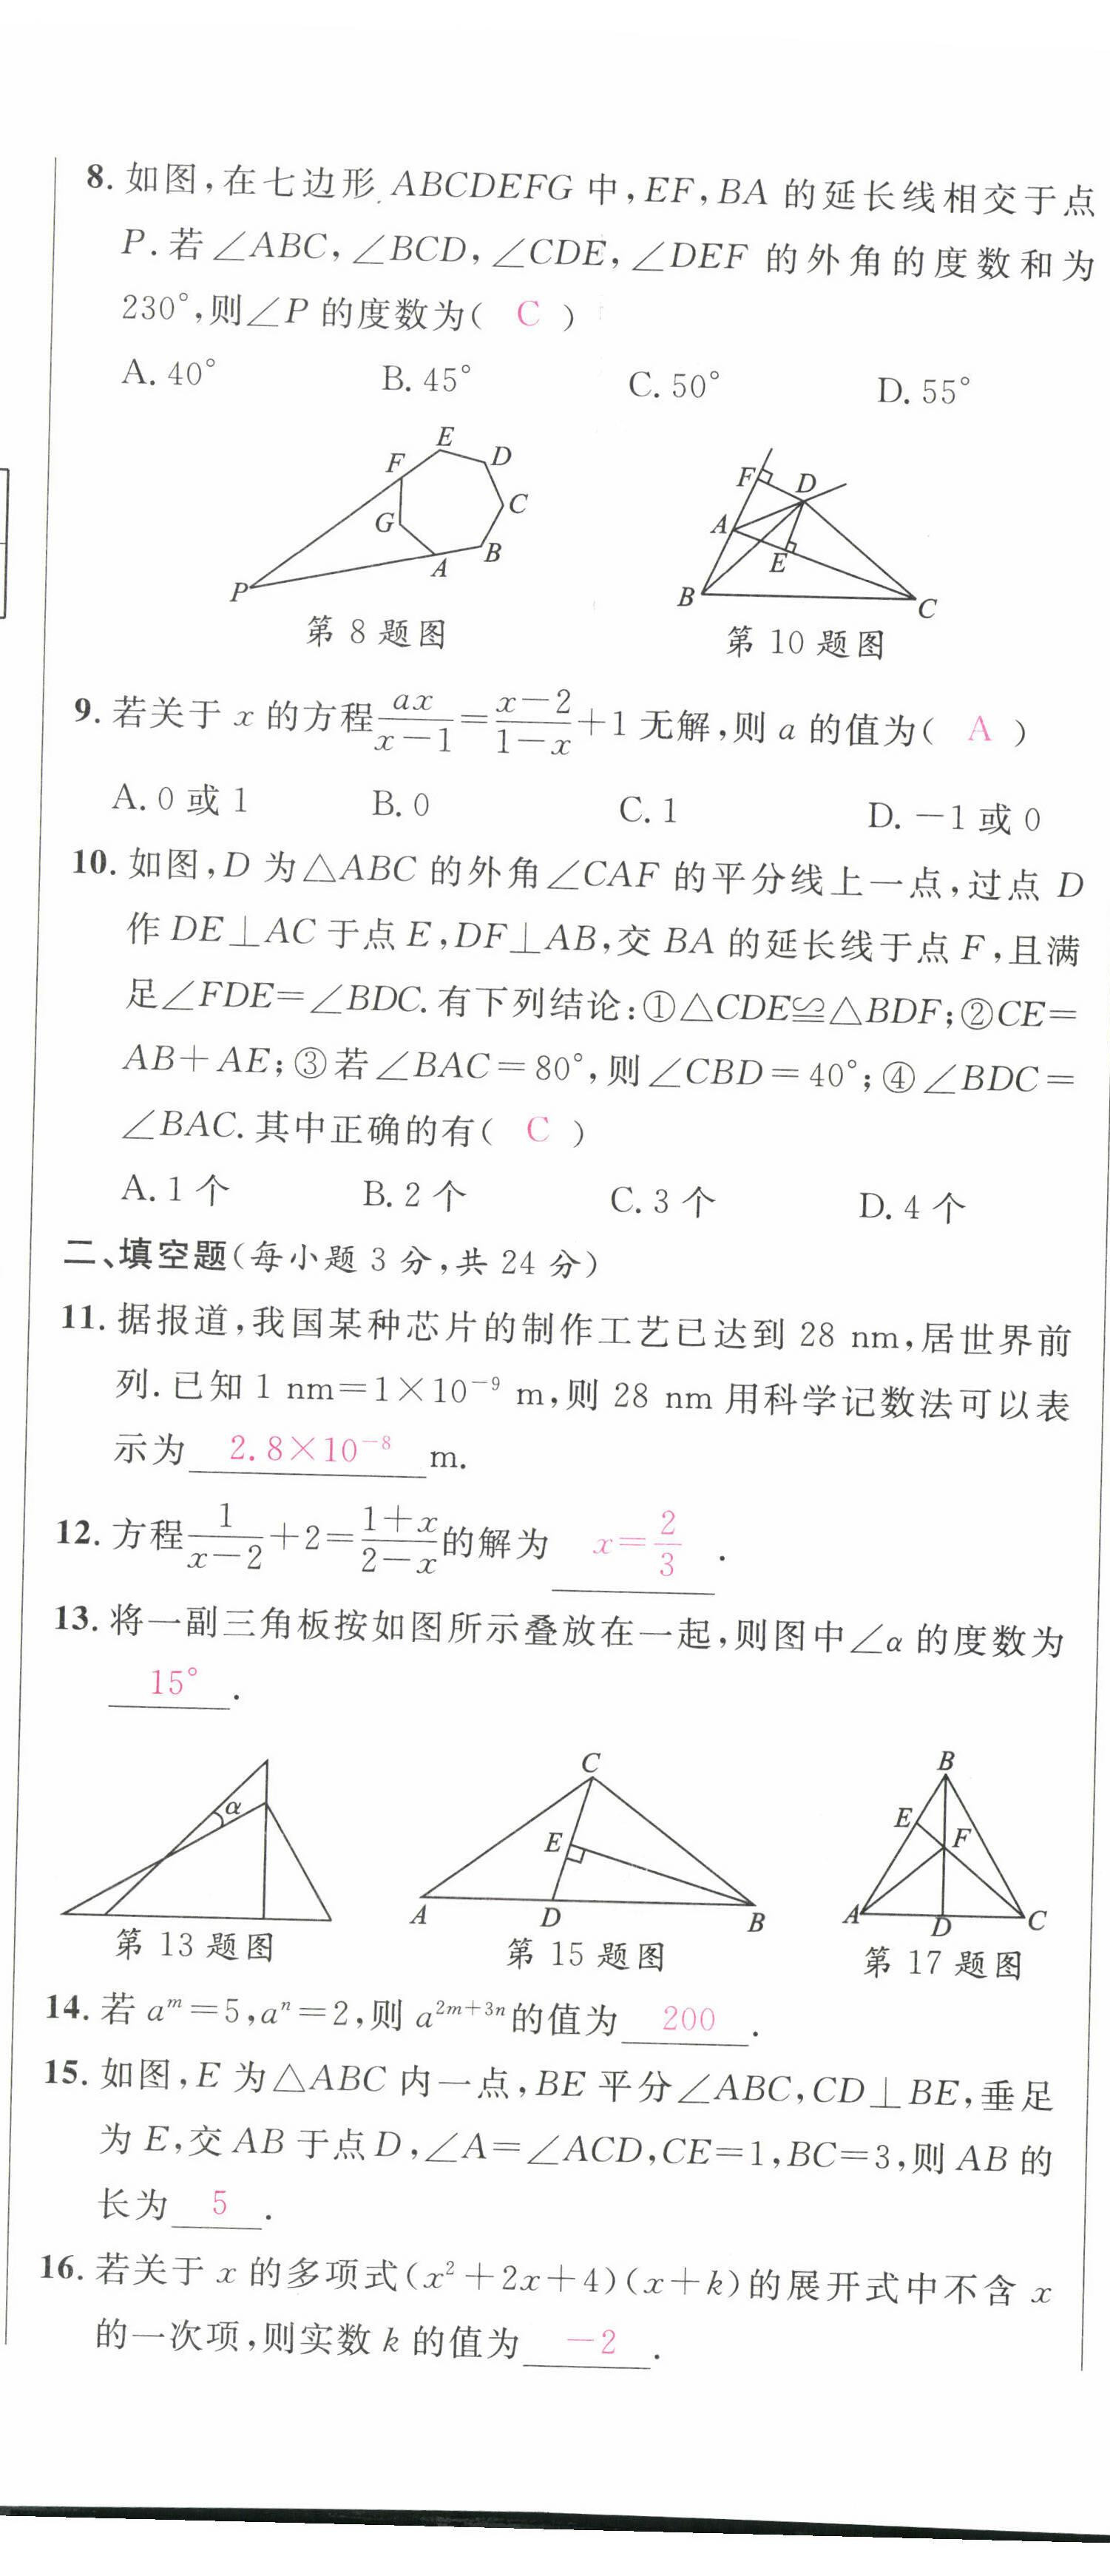 8. 如图,在七边形 ABCDEFG 中,EF,BA 的延长线相交于点
P. 若 ∠ABC, ∠BCD, ∠CDE, ∠DEF 的外角的度数和为
230°,则∠P 的度数为( C )
A. 40° B. 45° C. 50° D. 55°
E
F
D
C
G
B
A
P
第 8 题图
F
D
A
E
B
C
第 10 题图
9. 若关于 x 的方程 ax/(x−1)=(x−2)/(1−x)+1 无解,则 a 的值为( A )
A. 0 或 1 B. 0 C. 1 D. −1 或 0
10. 如图,D 为△ABC 的外角∠CAF 的平分线上一点,过点 D
作 DE⊥AC 于点 E,DF⊥AB,交 BA 的延长线于点 F,且满
足∠FDE=∠BDC. 有下列结论:①△CDE≌△BDF;②CE=
AB+AE;③若∠BAC=80°,则∠CBD=40°;④∠BDC=
∠BAC. 其中正确的有( C )
A. 1 个 B. 2 个 C. 3 个 D. 4 个
二、填空题(每小题 3 分,共 24 分)
11. 据报道,我国某种芯片的制作工艺已达到 28 nm,居世界前
列. 已知 1 nm=1×10⁻⁹ m,则 28 nm 用科学记数法可以表
示为 2.8×10⁻⁸ m.
12. 方程 1/(x−2)+2=(1+x)/(2−x) 的解为 x=2/3 .
13. 将一副三角板按如图所示叠放在一起,则图中∠α 的度数为
15° .
α
第 13 题图
C
E
A
D
B
第 15 题图
B
E
F
A
D
C
第 17 题图
14. 若 aᵐ=5,aⁿ=2,则 a²ᵐ⁺³ⁿ的值为 200 .
15. 如图,E 为△ABC 内一点,BE 平分∠ABC,CD⊥BE,垂足
为 E,交 AB 于点 D,∠A=∠ACD,CE=1,BC=3,则 AB 的
长为 5 .
16. 若关于 x 的多项式(x²+2x+4)(x+k)的展开式中不含 x
的一次项,则实数 k 的值为 −2 .